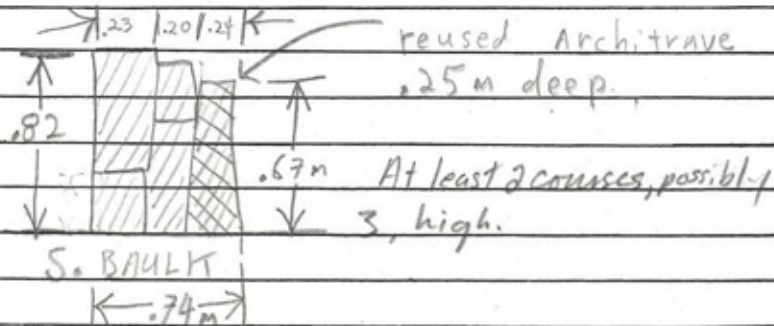 .23 .20 .24
reused Architrave
.25m deep.
.82
.67m At least 2 courses, possibly
3, high.
S. BAULK
.74m